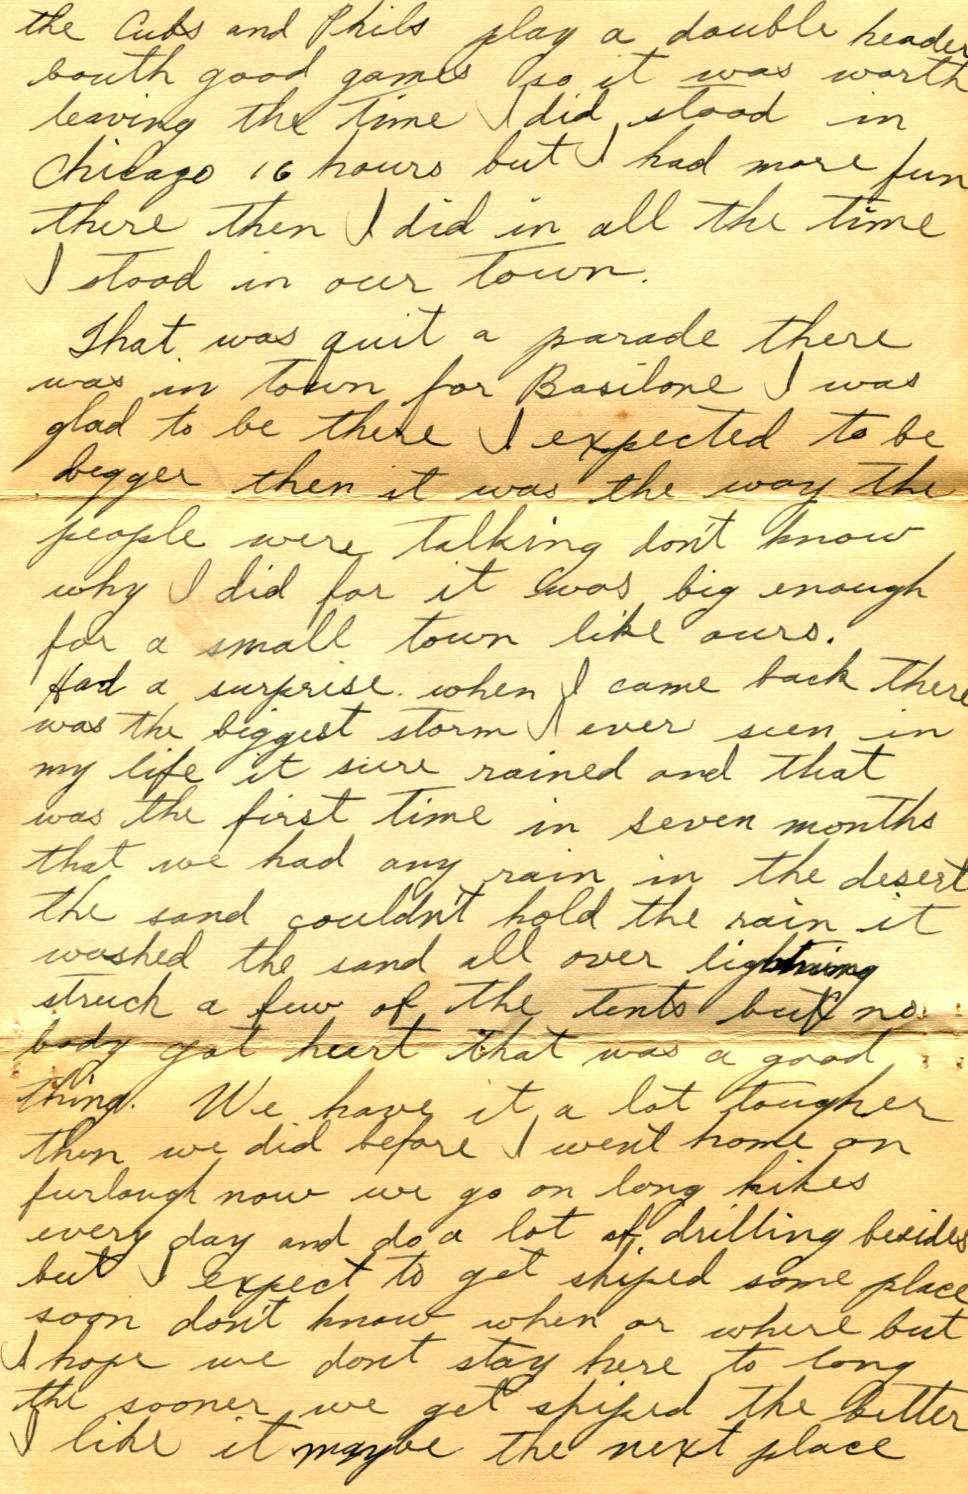 the Cubs and Phils play a double header
bouth good games so it was worth
leaving the time I did stood in
Chicago 16 hours but I had more fun
there then I did in all the time
I stood in our town.
That was quit a parade there
was in town for Basilone I was
glad to be there I expected to be
bigger then it was the way the
people were talking don't know
why I did for it was big enough
for a small town like ours.
Had a surprise when I came back there
was the biggest storm I ever seen in
my life it sure rained and that
was the first time in seven months
that we had any rain in the desert
the sand couldn't hold the rain it
washed the sand all over lightning
struck a few of the tents but no
body got hurt that was a good
thing. We have it a lot tougher
then we did before I went home on
furlough now we go on long hikes
every day and do a lot of drilling besides
but I expect to get shiped some place
soon don't know when or where but
I hope we dont stay here to long
the sooner we get shiped the better
I like it maybe the next place